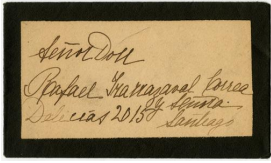 Señor Don
Rafael Irarrazaval Correa
y Señora.
Delicias 2015
Santiago